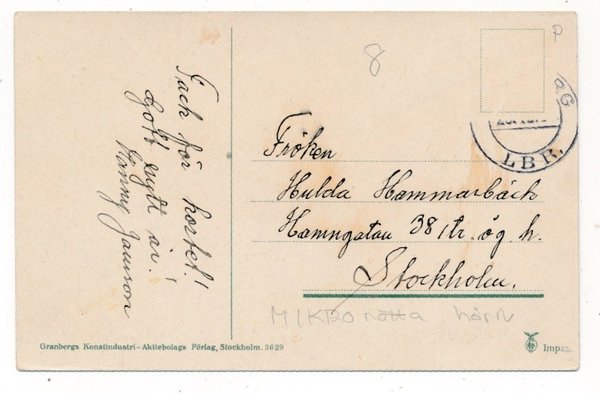 Tack för kortet!
Gott nytt år!
Fanny Jansson
8
P
aG
LBR.
Fröken
Hulda Hammarbäck
Hamngatan 38 1 tr. ög. h.
Stockholm.
MIKRO rotta hörn
Granbergs Konstindustri-Aktiebolags Förlag, Stockholm. 3629
Imp.